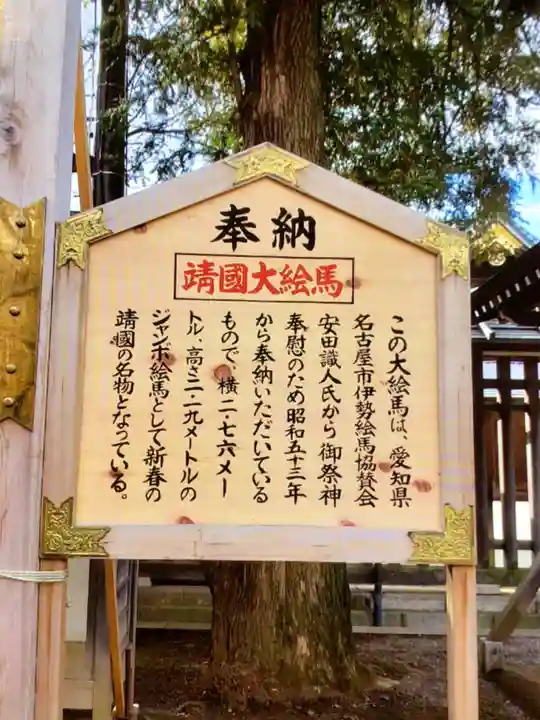 奉納
靖國大絵馬
この大絵馬は、愛知県
名古屋市伊勢絵馬協賛会
安田識人氏から御祭神
奉慰のため昭和五十三年
から奉納いただいている
もので、横二・七六メー
トル、高さ二・一九メートルの
ジャンボ絵馬として新春の
靖國の名物となっている。